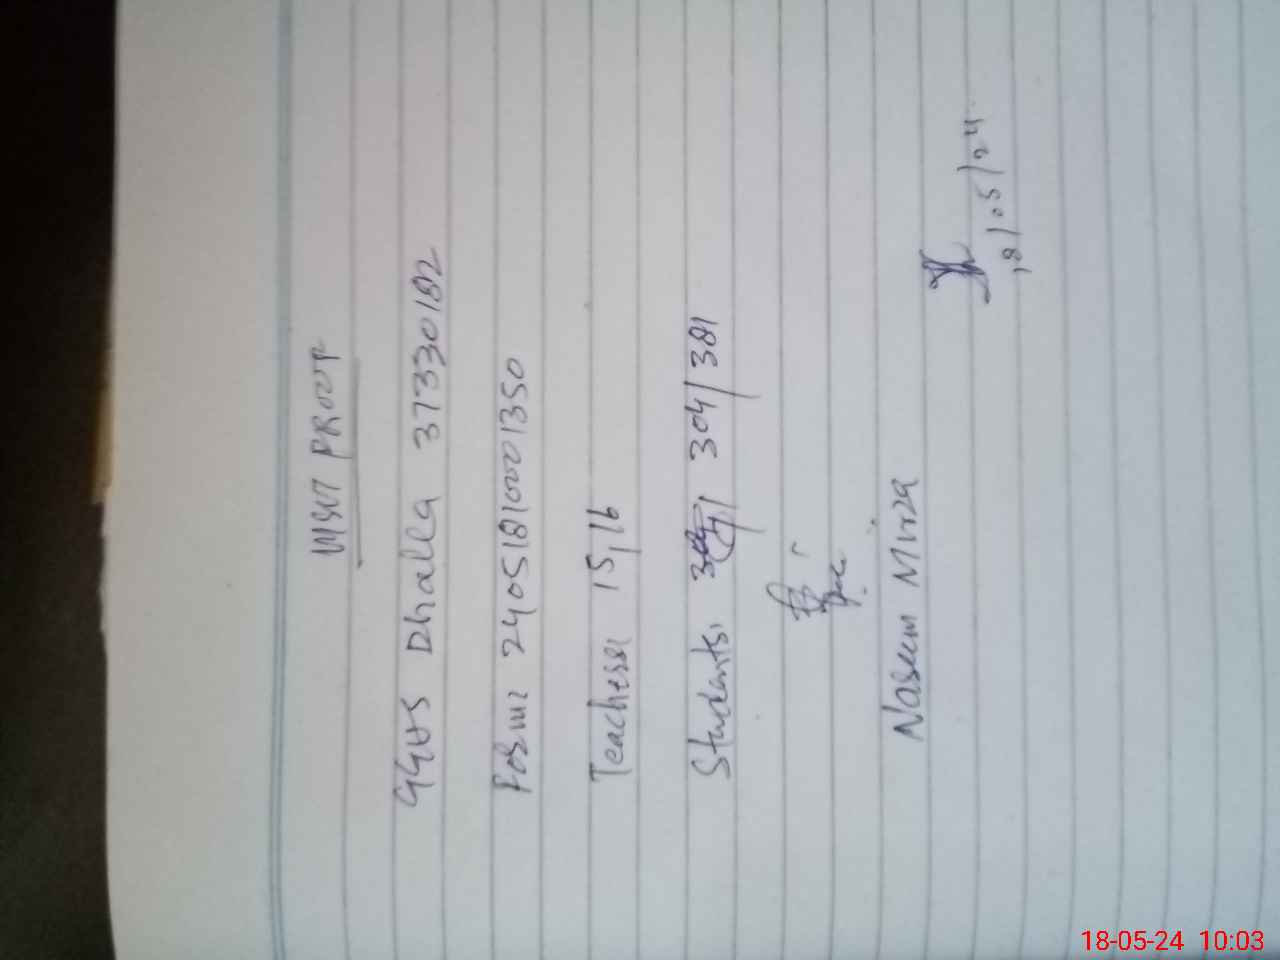 VISIT PROOF
GGHS Dhalla 37330182
Form: 24051810001350
Teachers 15/16
Students. 304/381
Naseem Mirza
18/05/24
18-05-24 10:03